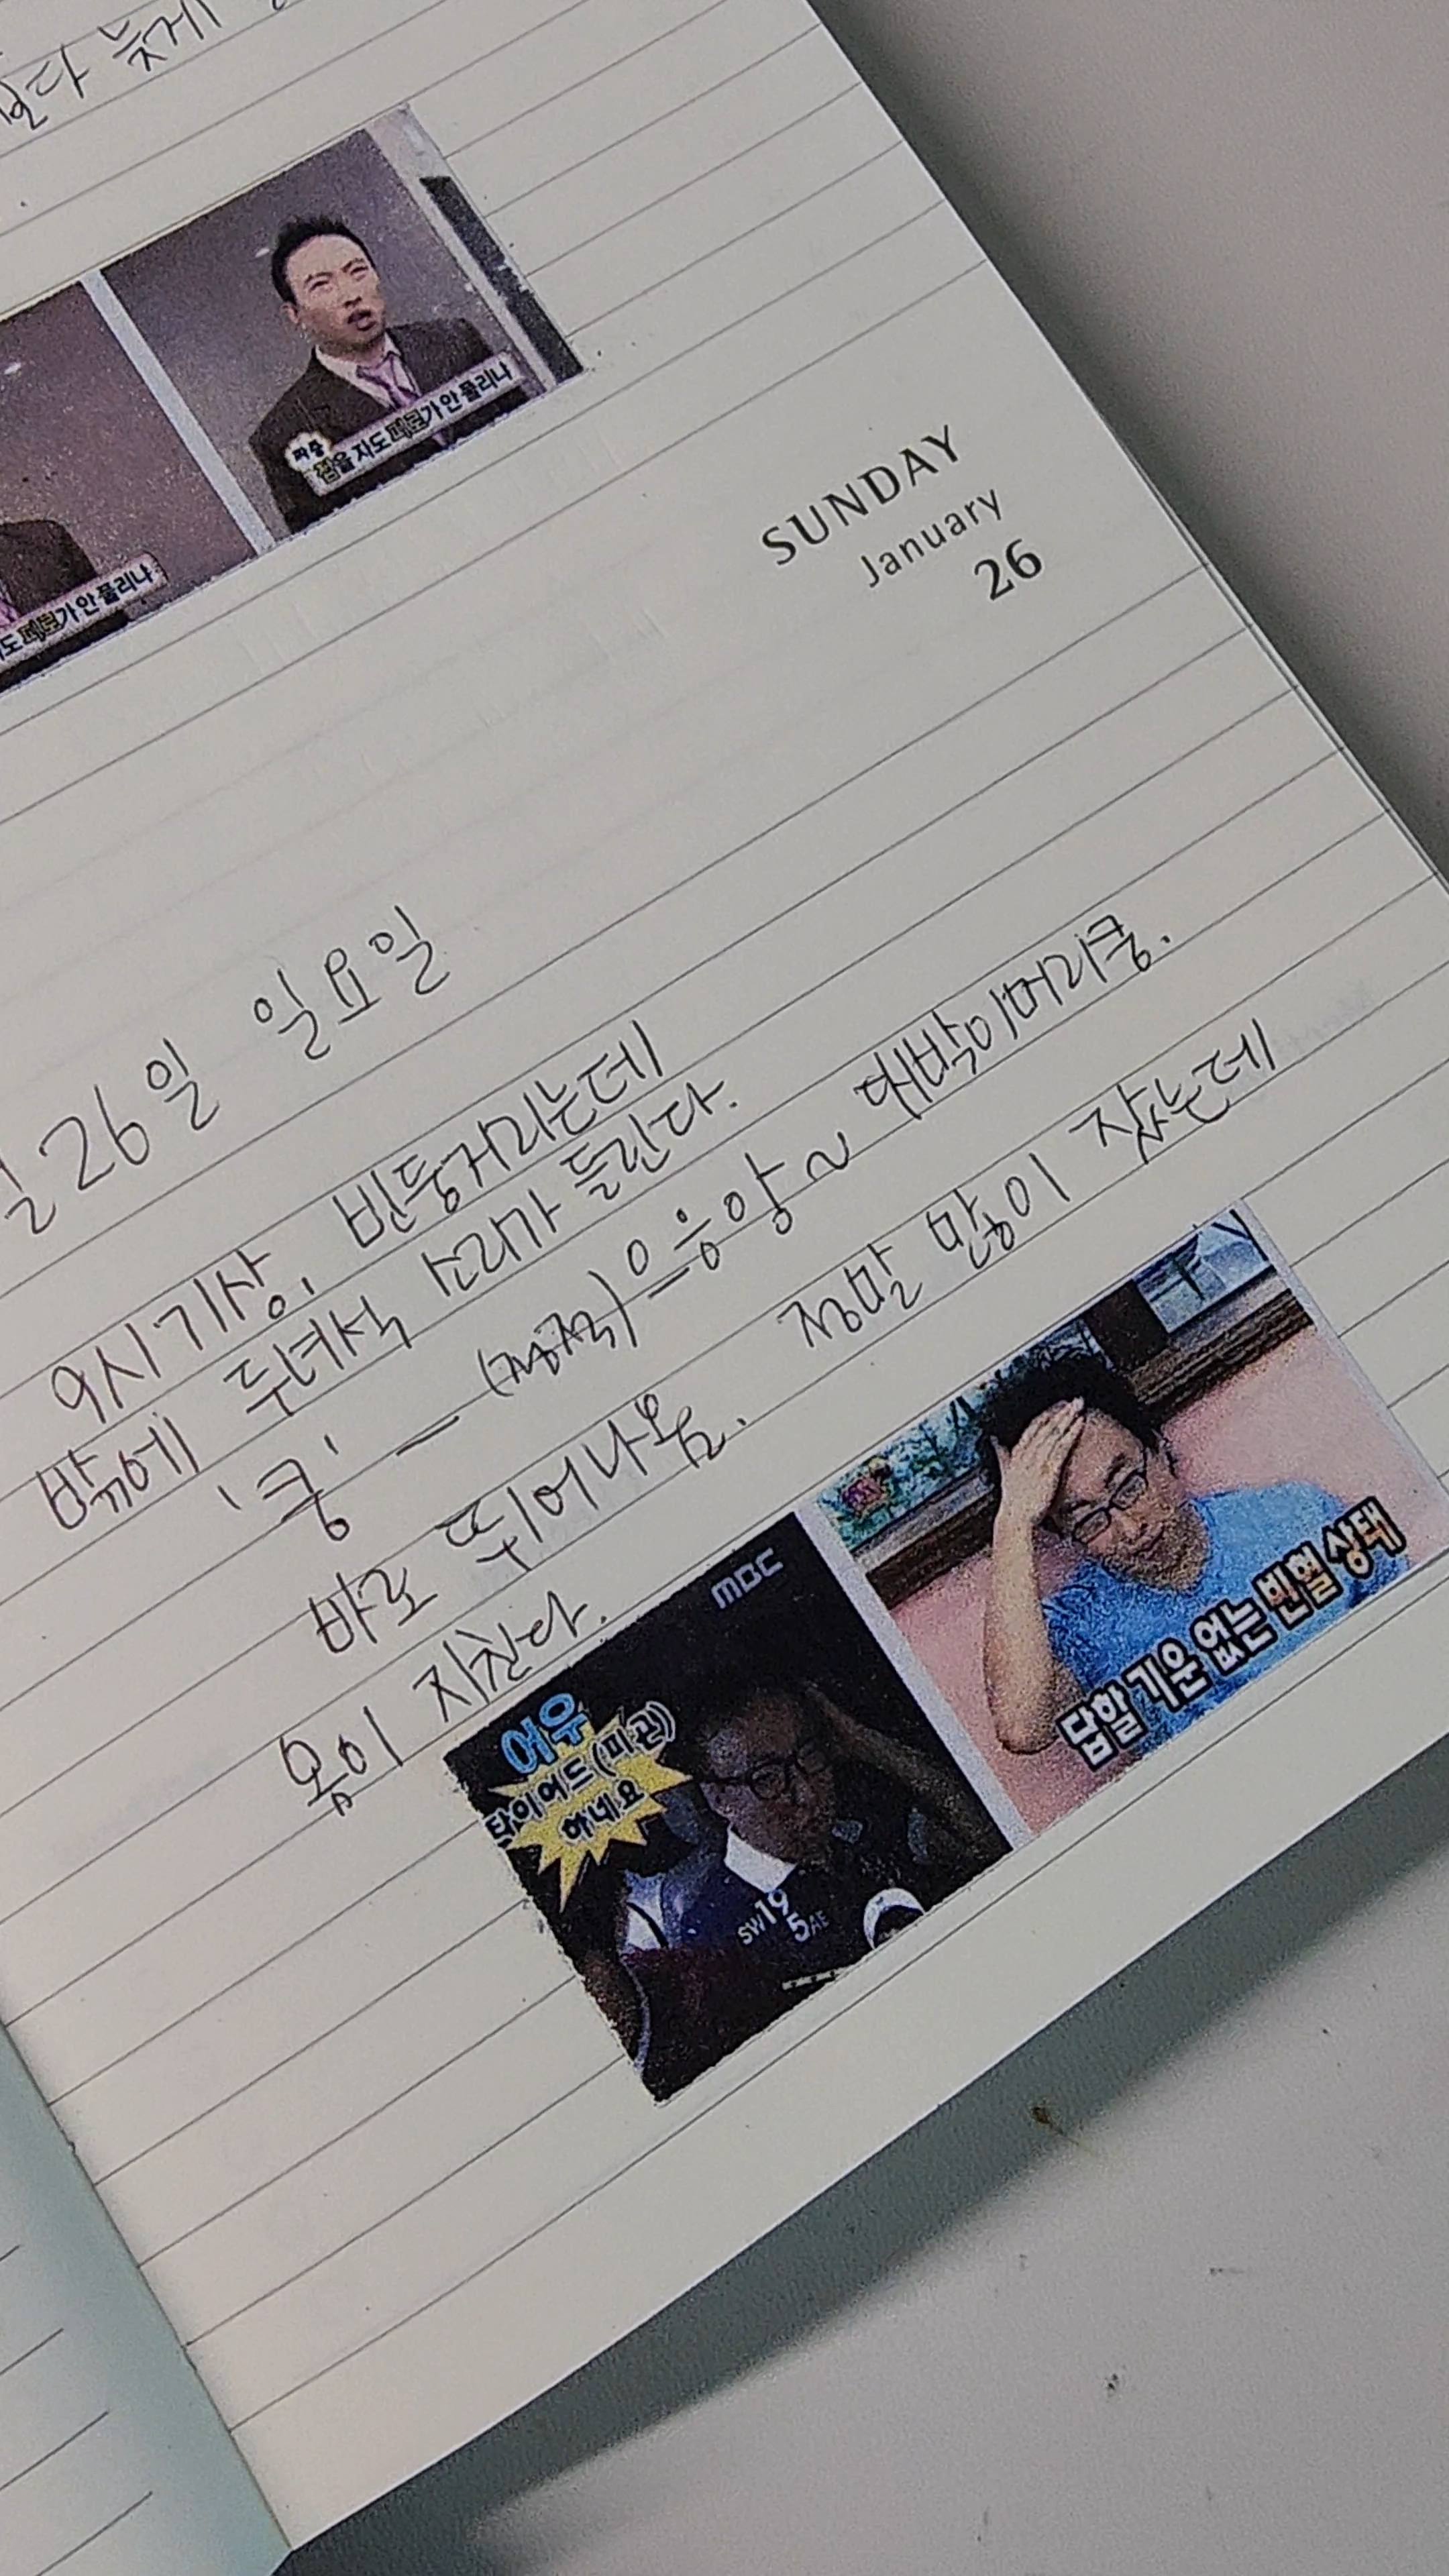 보다 늦게
짜증
잠을 자도 피로가 안 풀리냐
도 피로가 안 풀리냐
SUNDAY
January
26
26일 일요일
9시 기상, 빈둥거리는데
밖에 두녀석 소리가 들린다.
'쿵' — (정적) 으응앙~ 대박이 머리쿵.
바로 뛰어나옴. 정말 많이 잤는데
몸이 지친다.
MBC
어우
타이어드(피곤)
하네요
SW19
5AE
답할 기운 없는 빈혈 상태